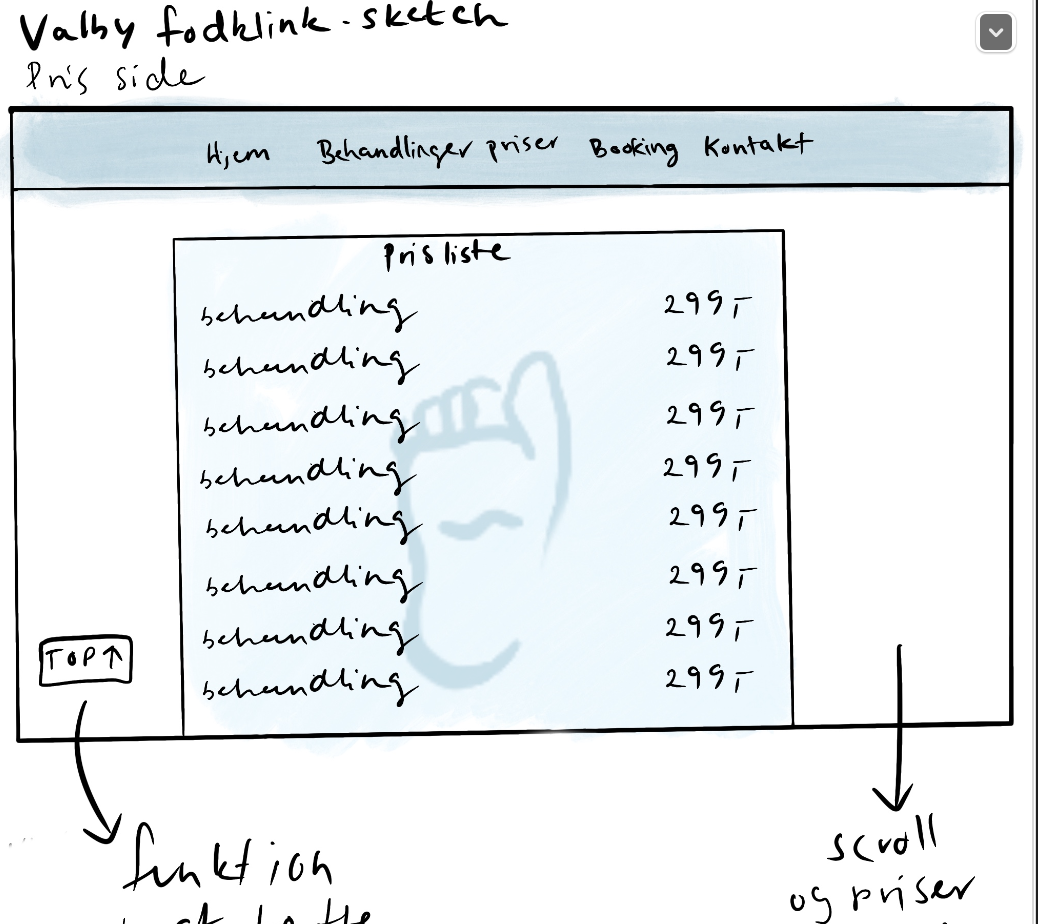 Valby fodklink - sketch
Pris side
Hjem Behandlinger priser Booking Kontakt
Prisliste
behandling 299,-
behandling 299,-
behandling 299,-
behandling 299,-
behandling 299,-
behandling 299,-
behandling 299,-
behandling 299,-
TOP ↑
funktion
scroll
og priser